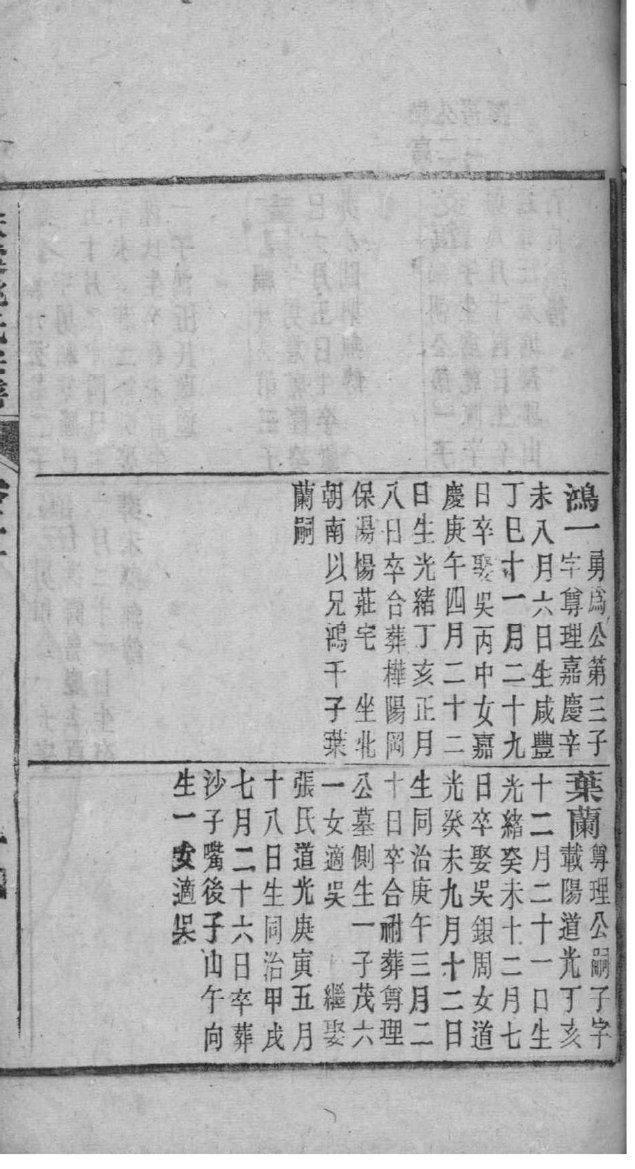 鴻一
勇為公第三子
字尊理嘉慶辛
未八月六日生咸豐
丁巳十一月二十九
日卒娶吳丙中女嘉
慶庚午四月二十二
日生光緒丁亥正月
八日卒合葬樺陽岡
保湯楊莊宅 坐北
朝南以兄鴻千子葉
蘭嗣
葉蘭
尊理公嗣子字
載陽道光丁亥
十二月二十一日生
光緒癸未十二月七
日卒娶吳銀周女道
光癸未九月十二日
生同治庚午三月二
十日卒合祔葬尊理
公墓側生一子茂六
一女適吳 繼娶
張氏道光庚寅五月
十八日生同治甲戌
七月二十六日卒葬
沙子嘴後子山午向
生一女適吳